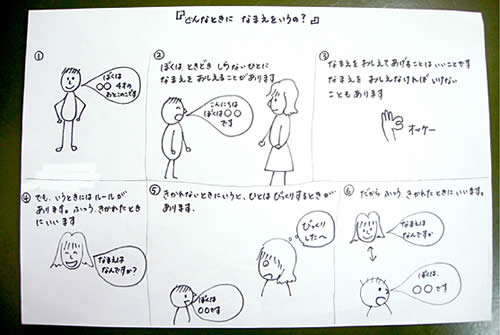 『どんなときに なまえをいうの?』
①
ぼくは
○○ 4才の
おとこのこです
②
ぼくは、ときどき しらないひとに
なまえを おしえることがあります
こんにちは
ぼくは○○
です
③
なまえをおしえてあげることは いいことです
なまえを おしえなければ いけない
こともあります
オッケー
④
でも、いうときには ルールが
あります。ふつう、きかれたとき
にいいます
なまえは
なんですか?
⑤
きかれないときにいうと、ひとは びっくりするときが
あります.
びっくり
した〜
ぼくは
○○です
⑥
だから ふつう、きかれたときに いいます。
なまえは
なんですか
ぼくは、
○○です